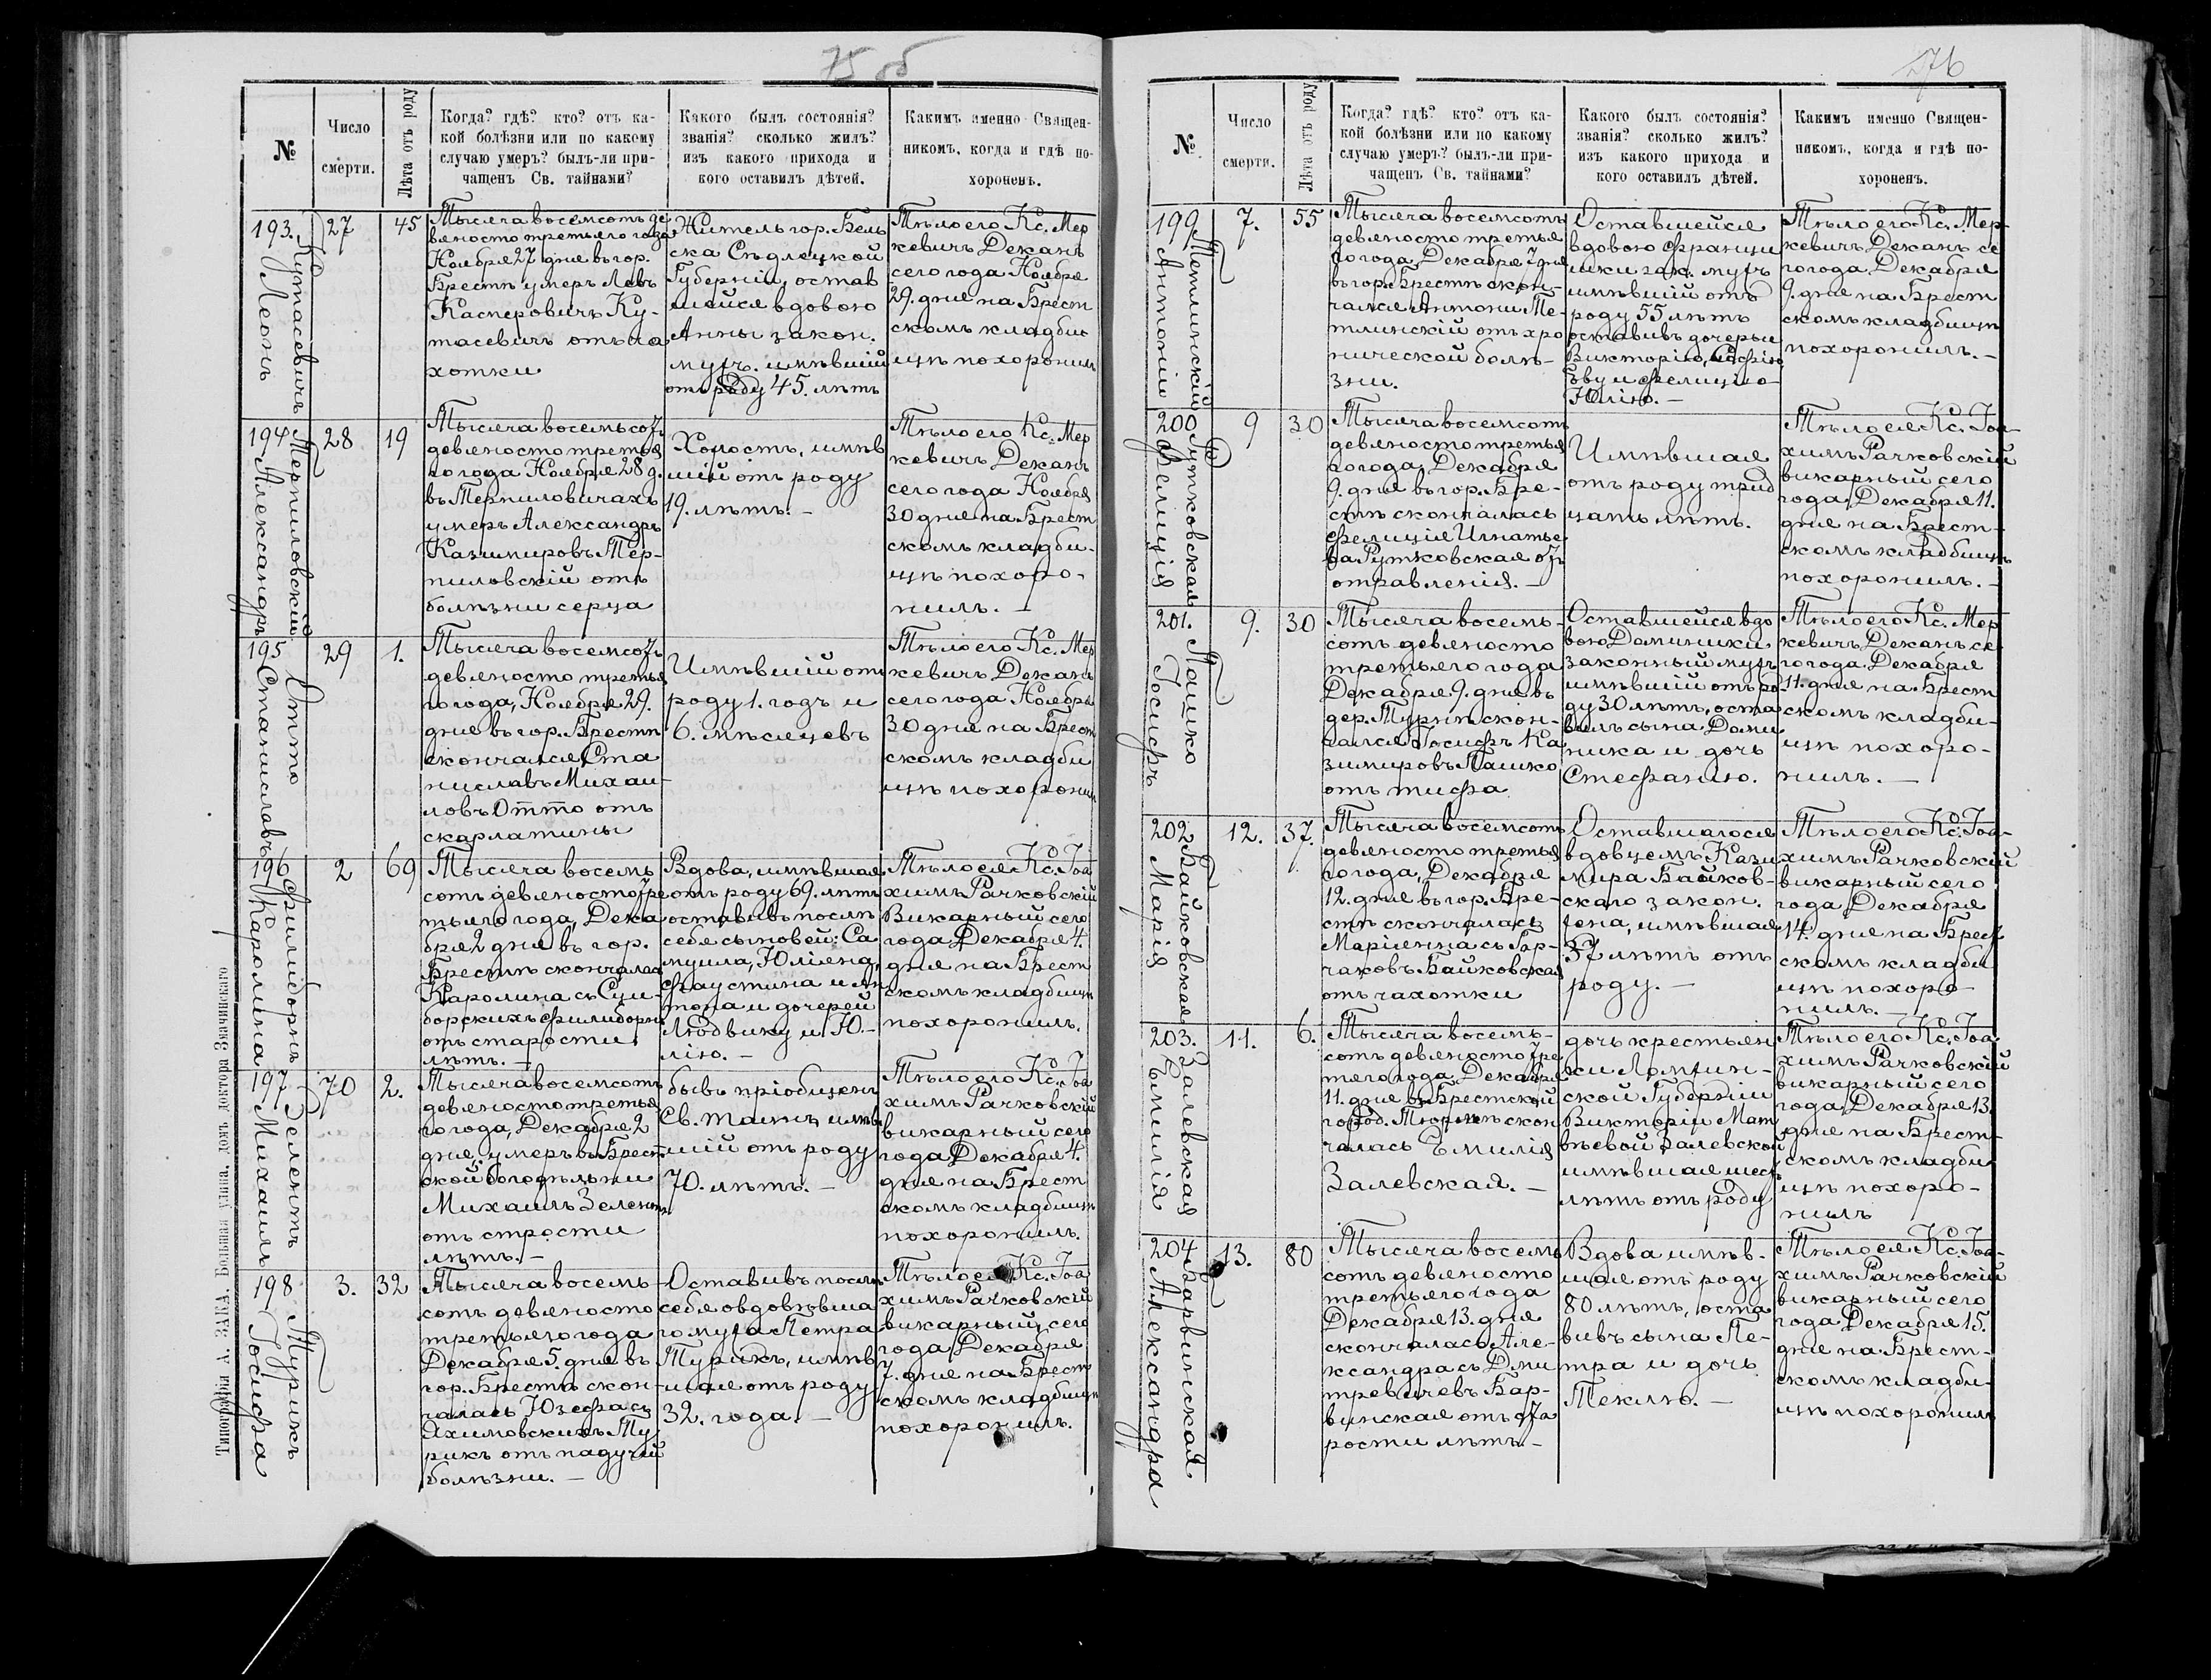 75 об
№
Число
смерти.
Лѣта отъ роду
Когда? гдѣ? кто? отъ ка-
кой болѣзни или по какому
случаю умеръ? былъ-ли при-
чащенъ Св. тайнами?
Какого былъ состоянія?
званія? сколько жилъ?
изъ какого прихода и
кого оставилъ дѣтей.
Какимъ именно Священ-
никомъ, когда и гдѣ по-
хороненъ.
193.
Кутасевичъ
Леонъ
27
45
Тысяча восемсотъ де
вяносто третьяго года
Ноября 27 дня въ гор.
Брестѣ умеръ Левъ
Касперовичъ Ку-
тасевичъ отъ ча
хотки
Житель гор. Бель
ска Сѣдлецкой
Губерніи, остав
шейся вдовою
Анны закон.
мужъ. имѣвшій
отъ роду 45. лѣтъ
Тѣло его Кс. Мер
кевичъ Деканъ
сего года Ноября
29. дня на Брест
скомъ кладби
щѣ похоронилъ
194
Терпиловскій
Александръ
28
19
Тысяча восемьсотъ
девяносто третья
го года Ноября 28 д.
въ Терпиловичахъ
умеръ Александръ
Казимировъ Тер-
пиловскій отъ
болѣзни серца
Холостъ, имѣв
шій отъ роду
19. лѣтъ. -
Тѣло его Кс. Мер
кевичъ Деканъ
сего года Ноября
30 дня на Брест
скомъ кладби-
щѣ похоро-
нилъ. -
195
Отто
Станиславъ
29
1.
Тысяча восемсотъ
девяносто третья
го года, Ноября 29.
дня въ гор. Брестѣ
скончался Ста
ниславъ Михаи-
ловъ Отто отъ
скарлатины
Имѣвшій отъ
роду 1. годъ и
6. мѣсяцевъ
Тѣло его Кс. Мер
кевичъ Деканъ
сего года Ноября
30 дня на Брест
скомъ кладби
щѣ похоронилъ
196
Филиборнъ
Каролина
2
69
Тысяча восемь
сотъ девяносто тре
тьяго года, Дека
бря 2 дня въ гор.
Брестѣ скончалась
Каролина съ Сци-
борскихъ Филиборнъ
отъ старости
лѣтъ. -
Вдова, имѣвшая
отъ роду 69. лѣтъ
оставивъ послѣ
себя сыновей: Са
муила, Юліяна,
Фаустина и Ан
тона и дочерей
Людвику и Ю-
лію. -
Тѣло ея Кс. Іоа
химъ Рачковскій
Викарный сего
года, Декабря 4.
дня на Брест
скомъ кладбищѣ
похоронилъ.
197
Зелентъ
Михаилъ
70
2.
Тысяча восемсотъ
девяносто третья
го года, Декабря 2
дня, умеръ въ Брест-
ской богодѣльни
Михаилъ Зелентъ
отъ стрости
лѣтъ. -
бывъ пріобщенъ
Св. таинъ, имѣв
шій отъ роду
70. лѣтъ. -
Тѣло его Кс. Іоа
химъ Рачковскій
викарный сего
года Декабря 4.
дня на Брест
скомъ кладбищѣ
похоронилъ.
198
Турикъ
Іосифа
3.
32
Тысяча восемь
сотъ девяносто
третьяго года
Декабря 5. дня въ
гор. Брестѣ скон-
чалась Юзефа съ
Яхимовскихъ Ту
рикъ отъ падучей
болѣзни. -
Оставивъ послѣ
себя овдовѣвша
го мужа Петра
Турикъ, имѣв
шая отъ роду
32. года. -
Тѣло ея Кс. Іоа
химъ Рачковскій
викарный, сего
года Декабря
7. дня на Брест
скомъ кладбищѣ
похоронилъ.
Типографія А. ЗАКА. Большая улица, домъ доктора Звачинскаго
76
№
Число
смерти.
Лѣта отъ роду
Когда? гдѣ? кто? отъ ка-
кой болѣзни или по какому
случаю умеръ? былъ-ли при-
чащенъ Св. тайнами?
Какого былъ состоянія?
званія? сколько жилъ?
изъ какого прихода и
кого оставилъ дѣтей.
Какимъ именно Священ-
никомъ, когда и гдѣ по-
хороненъ.
199
Тетлинскій
Антоній
7.
55
Тысяча восемсотъ
девяносто третья
го года, Декабря 7 дня
въ гор. Брестѣ скон-
чался Антони Те-
тлинскій отъ хро
нической болѣ-
зни.
Оставшейся
вдовою Францы
шки зак. мужъ
имѣвшій отъ
роду 55 лѣтъ
оставивъ дочерьи
Викторію, Софію,
Еву и Фелицію-
Юлію. -
Тѣло его Кс. Мер-
кевичъ Деканъ се
го года, Декабря
9. дня на Брест
скомъ кладбищѣ
похоронилъ. -
200
Рутковская
Фелиція
9
30
Тысяча восемсотъ
девяносто третья
го года, Декабря
9. дня въ гор. Бре-
стѣ скончалась
Фелиція Игнатье
ва Рутковская отъ
отравленія. -
Имѣвшая
отъ роду трид
цать лѣтъ.
Тѣло ея Кс. Іоа-
химъ Рачковскій
викарный сего
года, Декабря 11.
дня на Брест-
скомъ кладбищѣ
похоронилъ. -
201.
Пашко
Іосифъ
9.
30
Тысяча восемь-
сотъ девяносто
третьяго года
Декабря 9. дня въ
дер. Турнѣ скон-
чался Іосифъ Ка
зимировъ Пашко
отъ тифа
Оставшейся вдо
вою Доминики
законный мужъ
имѣвшій отъ ро
ду 30 лѣтъ, оста
вилъ сына Доми
ника и дочь
Стефанію.
Тѣло его Кс. Мер
кевичъ Деканъ се
го года, Декабря
11. дня на Брест
скомъ кладби-
щѣ похоро-
нилъ. -
202
Байковская
Марія
12.
37.
Тысяча восемсотъ
девяносто третья
го года, Декабря
12. дня въ гор. Бре-
стѣ скончалась
Маріянна съ Гор-
чаковъ Байковская
отъ чахотки
Оставшагося
вдовцемъ Кази
мира Байков-
скаго закон.
жена, имѣвшая
37 лѣтъ отъ
роду. -
Тѣло его Кс. Іоа-
химъ Рачковскій
викарный сего
года, Декабря
14. дня на Брест
скомъ кладби
щѣ похоро-
нилъ. -
203.
Залевская
Емилія
11.
6.
Тысяча восемь-
сотъ девяносто тре
тяго года, Декабря
11. дня въ Брестской
город. Тюрмѣ скон
чалась Емилія
Залевская. -
дочь крестьян
ки Ломжин-
ской Губерніи
Викторіи Мат
вѣевой Залевской
имѣвшая шесть
лѣтъ отъ роду
Тѣло его Кс. Іоа-
химъ Рачковскій
викарный сего
года, Декабря 13.
дня на Брест-
скомъ кладби-
щѣ похоро-
нилъ
204
Барвинская
Александра
13.
80
Тысяча восемь
сотъ девяносто
третьяго года
Декабря 13. дня
скончалась Але-
ксандра съ Дми
тревичевъ Бар-
винская отъ ста
рости лѣтъ. -
Вдова имѣв-
шая отъ роду
80 лѣтъ, оста
вивъ сына Пе-
тра и дочь
Теклю. -
Тѣло ея Кс. Іоа-
химъ Рачковскій
викарный сего
года Декабря 15.
дня на Брест-
скомъ кладби-
щѣ похоронилъ